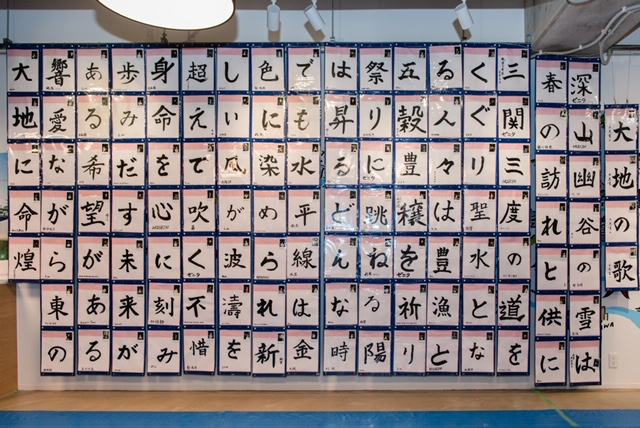 大地の歌
深山幽谷の雪は
春の訪れと供に
三関三度の道を
くぐり聖水とな
る人々は豊漁と
五穀豊穣を祈り
祭りに跳ねる陽
は昇るどんな時
でも水平線は金
色に染めら れ新
しい風が波濤を
超えで吹く不惜
身命を心に刻み
歩みだす未来が
ある希望がある
響愛ながら東の
大地に命煌